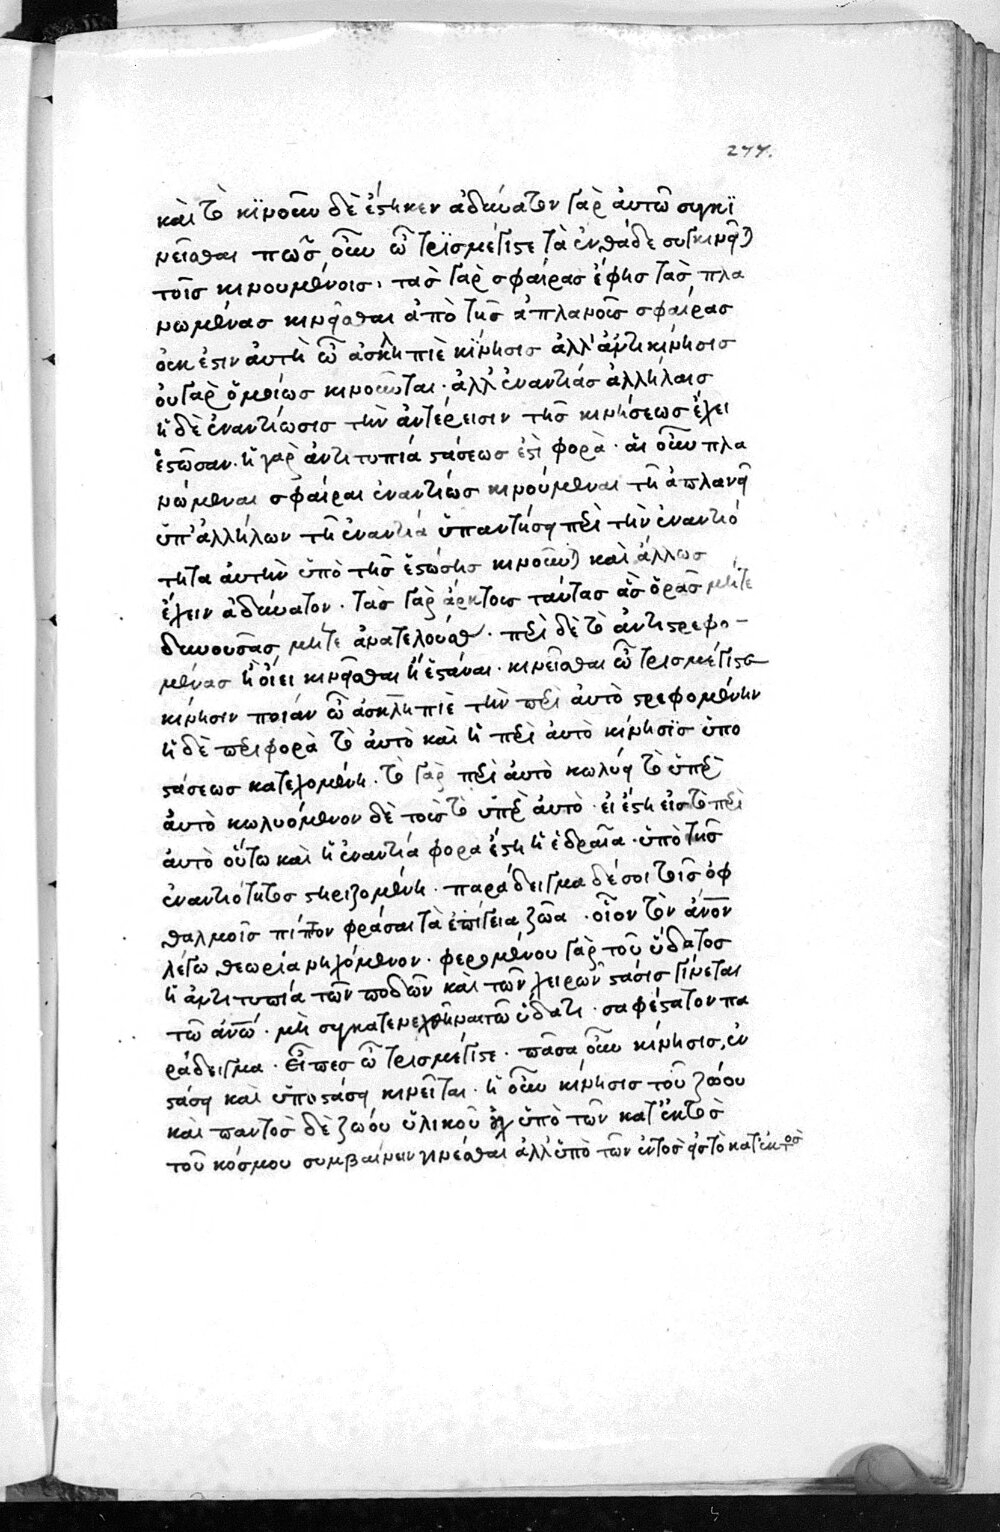 277.
καὶ τὸ κϊνοῦν δὲ ἕστηκεν ἀδύνατον γὰρ ἀυτῶ συγκϊ
νεῖσθαι πῶσ οὖν ὦ τρϊσμέγιστε τὰ ἐνθάδε συγκινεῖται
τοῖσ κινουμένοισ, τασ γὰρ σφαίρασ ἔφησ τασ πλα
νωμένασ κινεῖσθαι ἀπὸ τῆσ ἀπλανοῦσ σφαίρασ
ὀυκ ἔστιν ἀυτὴ ὦ ἀσκληπιὲ κϊνησισ ἀλλ' ἀντικίνησισ
ὀυ γὰρ ὅμοίωσ κινοῦνται. ἀλλ' ἐναντίασ ἀλλήλαισ
ἡ δὲ ἐναντίωσισ τὴν ἀντέρεισιν τῆσ κινήσεωσ ἔχει
ἑστῶσαν. ἡ γὰρ ἀντιτυπία στάσεωσ ἐστὶ φορὰ. ἅι οὖν πλα
νώμεναι σφαίραι ἐναντίωσ κινούμεναι τῆ ἀπλανεῖ
ὕπ' ἀλλήλων τῆ ἐναντία ὕπαντήσει περὶ τὴν ἐναντιό
τητα ἀυτὴν ὑπὸ τῆσ ἕστώσησ κινοῦνται καὶ ἄλλωσ
ἔχειν ἀδύνατον. τὰσ γὰρ ἄρκτουσ ταύτασ ἃσ ὅρασ μήτε
δυνουσασ μήτε ἀνατελούσασ. περὶ δὲ τὸ ἀντιστρεφο-
μένασ ἢ ὄιει κινεῖσθαι ἢ ἕστάναι. κινεῖσθαι ὦ τρισμέγιστε
κίνησιν ποιάν ὦ ἀσκληπιὲ τὴν περὶ ἀυτὸ στρεφομένην
ἡ δὲ περιφορὰ τὸ ἀυτὸ καὶ ἡ περὶ ἀυτὸ κίνησϊσ ὑπο
στάσεωσ κατεχομένη. τὸ γὰρ περὶ ἀυτὸ κωλύει τὸ ὑπὲρ
ἀυτὸ κωλυόμενον δὲ τοισ τὸ ὑπὲρ ἀυτὸ. ἐι ἔστη εισ τὸ περὶ
ἀυτὸ οὕτω καὶ ἡ ἐναντία φορα ἔστη ἡ ἑδραῖα. ὑπὸ τῆσ
ἐναντιότητοσ στηριζομένη. παράδειγμα δέ σοι τοῖσ ὀφ
θαλμοῖσ πίπτον φράσαι τὰ ἐπίγεια ζῶα. οἷον τὸν ἄνον
λέγω θεωρία νηχόμενον. φερομένου γὰρ τοῦ ὕδατοσ
ἡ ἀντιτυπία τῶν ποδῶν καὶ τῶν χειρῶν στάσισ γίνεται
τῶ ἀνῶ. μὴ συγκατενεχθῆναι τῶ ὕδατι. σαφέστατον πα
ράδειγμα. Εἶπεσ ὦ τρισμέγιστε. πᾶσα οὖν κίνησισ, ἐν
στάσει καὶ ὕπο στάσει κινεῖται. ἡ οὖν κίνησισ τοῦ ζώου
καὶ παντὸσ δὲ ζώου ὕλικοῦ οὐχ ὕπὸ τῶν κατ' ἐκτὸσ
τοῦ κόσμου συμβαίνειν γινέσθαι ἀλλ' ὕπὸ τῶν ἐντοσ εἰσ τὸ κατ' ἐκτοσ